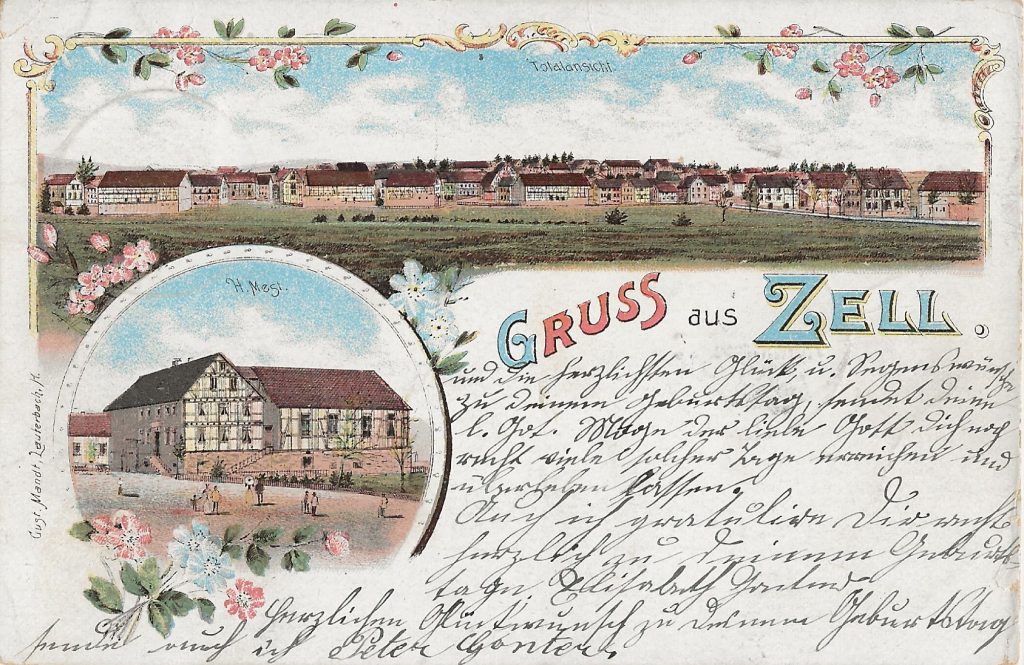 Totalansicht
H. Megl.
GRUSS aus ZELL.
Gust. Mandt, Lauterbach, H.
und die herzlichsten Glück u. Segenswünsche
zu deinem Geburtstag, sendet deine
l. Got. Möge der liebe Gott dich noch
recht viele solcher Tage erreichen und
überleben lassen.
Auch ich gratulire Dir recht
herzlich zu Deinem Geburts-
tage. Elisabeth
Herzlichen Glückwunsch zu Deinem Geburtstag
sende auch ich Peter Gonter.